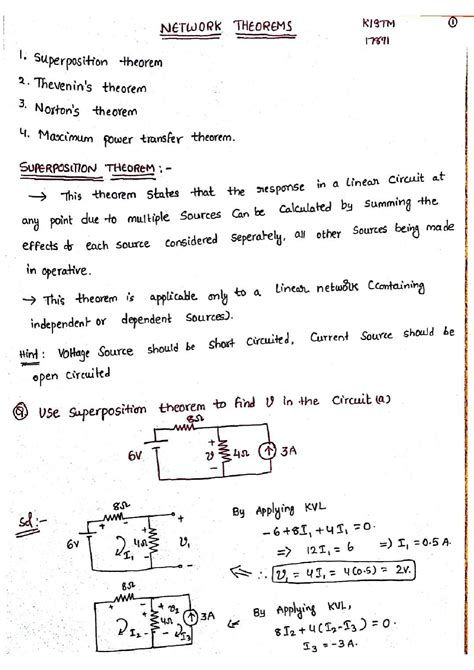 NETWORK THEOREMS
KISTM
17891
1
1. Superposition theorem
2. Thevenin's theorem
3. Norton's theorem
4. Maximum power transfer theorem.
SUPERPOSITION THEOREM :-
→ This theorem states that the response in a linear circuit at
any point due to multiple sources can be calculated by summing the
effects of each source considered seperately, all other sources being made
in operative.
→ This theorem is applicable only to a linear network (containing
independent or dependent sources).
Hint : Voltage Source should be short circuited, Current source should be
open circuited
Q Use superposition theorem to find υ in the circuit (a)
8Ω
6V
+
υ
-
4Ω
3A
Sol :-
8Ω
6V
+
-
4Ω
I₁
+
υ₁
-
By Applying KVL
-6+8I₁+4I₁ = 0.
⇒ 12I₁ = 6 ⇒ I₁ = 0.5A.
∴ υ₁ = 4I₁ = 4(0.5) = 2V.
8Ω
+
-
I₂
+
υ₂
-
4Ω
3A
I₃
By Applying KVL,
8I₂+4(I₂-I₃) = 0.
I₃ = -3A.